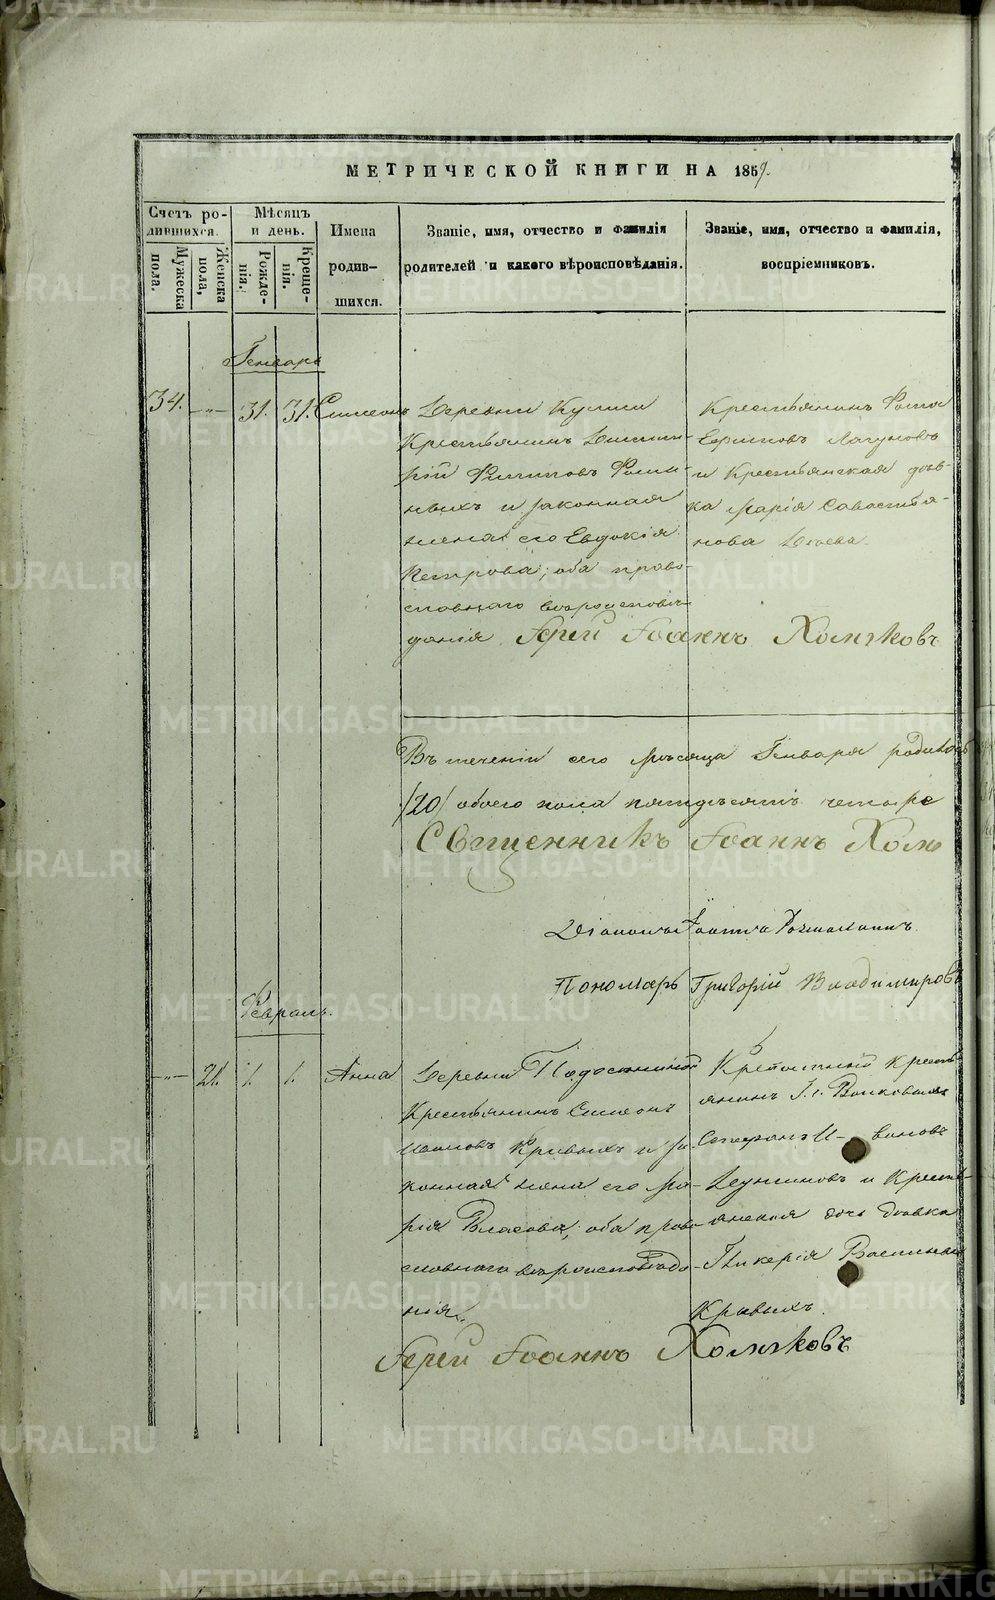 МЕТРИЧЕСКОЙ КНИГИ НА 1859.
Счетъ ро-
дившихся.
Мужеска пола.
Женска пола,
Мѣсяцъ
и день.
Рожде-
нія.
Креще-
нія.
Имена
родив-
шихся.
Званіе, имя, отчество и фамилія
родителей и какого вѣроисповѣданія.
Званіе, имя, отчество и фамилія,
воспріемниковъ.
Генварь
34. —"— 31. 31. Симеонъ
Деревни
Крестьянинъ Димит-
рій Филиповъ Фоми-
ныхъ и законная
жена его Евдокія
Петрова; оба право-
славнаго вѣроисповѣ-
данія
Крестьянинъ Фома
Ефимовъ Лагуновъ
и Крестьянская дѣв-
ка Марія Савостья-
нова
Іерей Іоаннъ Холмяковъ
Въ теченіи сего мѣсяца Генваря родилось
обоего пола пятьдесятъ четыре
Священникъ Іоаннъ Холм
Діаконъ
Пономарь Григорій Владимировъ
Февраль.
—"— 21. 1. 1. Анна
Деревни
Крестьянинъ Симеонъ
Ивановъ Кривыхъ и за-
конная жена его Ма-
рія Власова; оба право-
славнаго вѣроисповѣда-
нія.
крест-
янинъ
Стефанъ И-вановъ
и Крест-
янская дочь дѣвка
Гликерія
Кривыхъ.
Іерей Іоаннъ Холмяковъ
METRIKI.GASO-URAL.RU